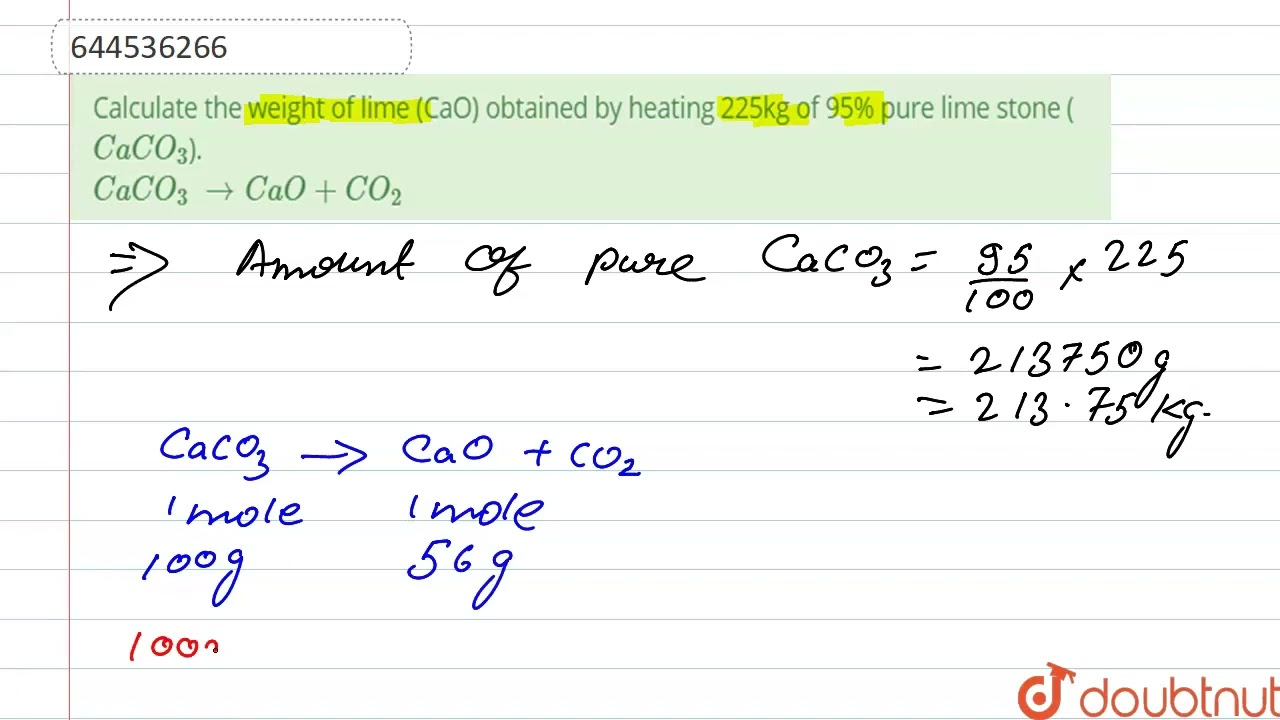 644536266
Calculate the weight of lime (CaO) obtained by heating 225kg of 95% pure lime stone (
CaCO₃).
CaCO₃ → CaO + CO₂
⇒ Amount of pure CaCO₃ = 95/100 × 225
= 213750g
= 213.75 kg.
CaCO₃ → CaO + CO₂
1 mole 1 mole
100g 56g
100
doubtnut